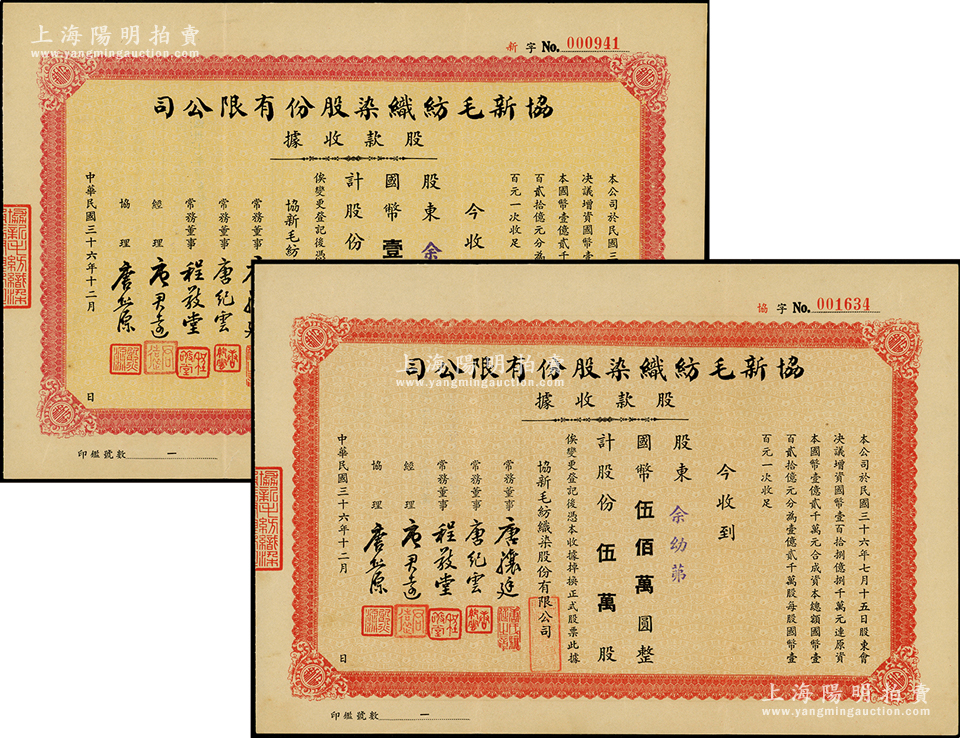 上海陽明拍賣
www.yangmingauction.com
新 字 No. 000941
司公限有份股染織紡毛新協
據收款股
本公司於民國三
决議增資國幣壹
本國幣壹億貳千
百貳拾億元分為
百元一次收足
今收
股東 余
國幣 壹
計股份
俟變更登記後憑
協新毛紡
常務董事
常務董事 唐紀雲
常務董事 程敬堂
經理 唐君遠
協理 唐熊源
中華民國三十六年十二月 日
印鑑號數 一
協 字 No. 001634
司公限有份股染織紡毛新協
據收款股
上海陽明拍賣
www.yangmingauction.com
本公司於民國三十六年七月十五日股東會
决議增資國幣壹百拾捌億捌千萬元連原資
本國幣壹億貳千萬元合成資本總額國幣壹
百貳拾億元分為壹億貳千萬股每股國幣壹
百元一次收足
今收到
股東 余幼苐
國幣 伍佰萬 圓整
計股份 伍萬 股
俟變更登記後憑本收據掉換正式股票此據
協新毛紡織染股份有限公司
常務董事 唐驤廷
常務董事 唐紀雲
常務董事 程敬堂
經理 唐君遠
協理 唐熊源
中華民國三十六年十二月 日
印鑑號數 一
上海陽明拍賣
www.yangmingauction.com